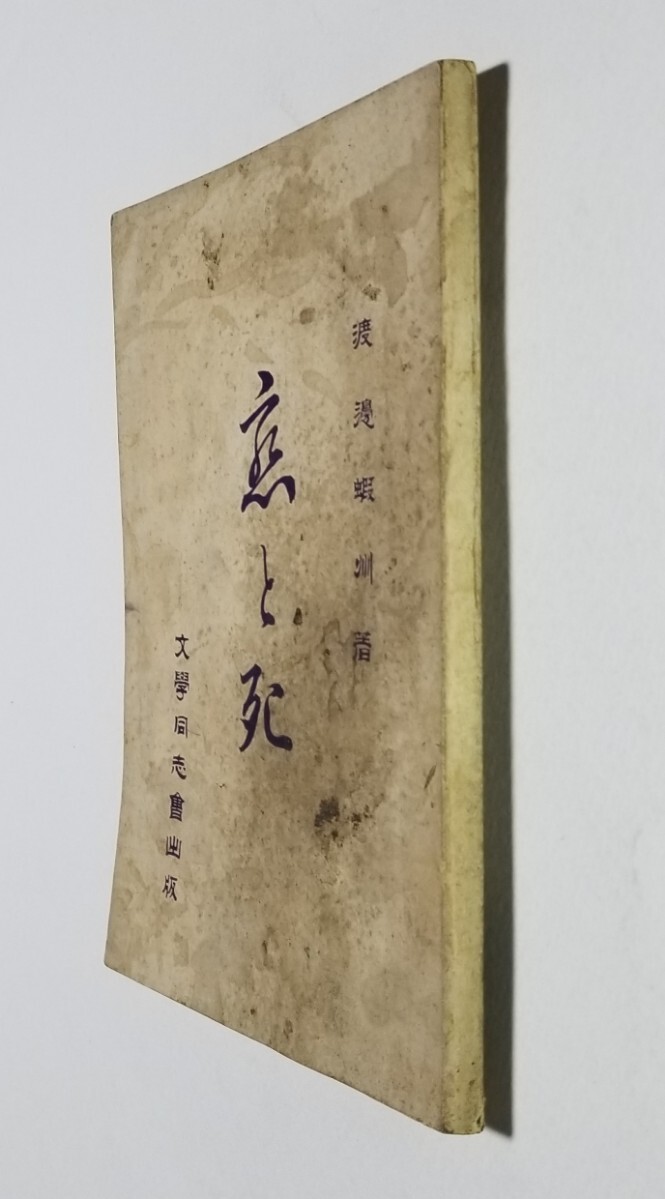 渡邊蝦洲著
戀と死
文學同志會出版